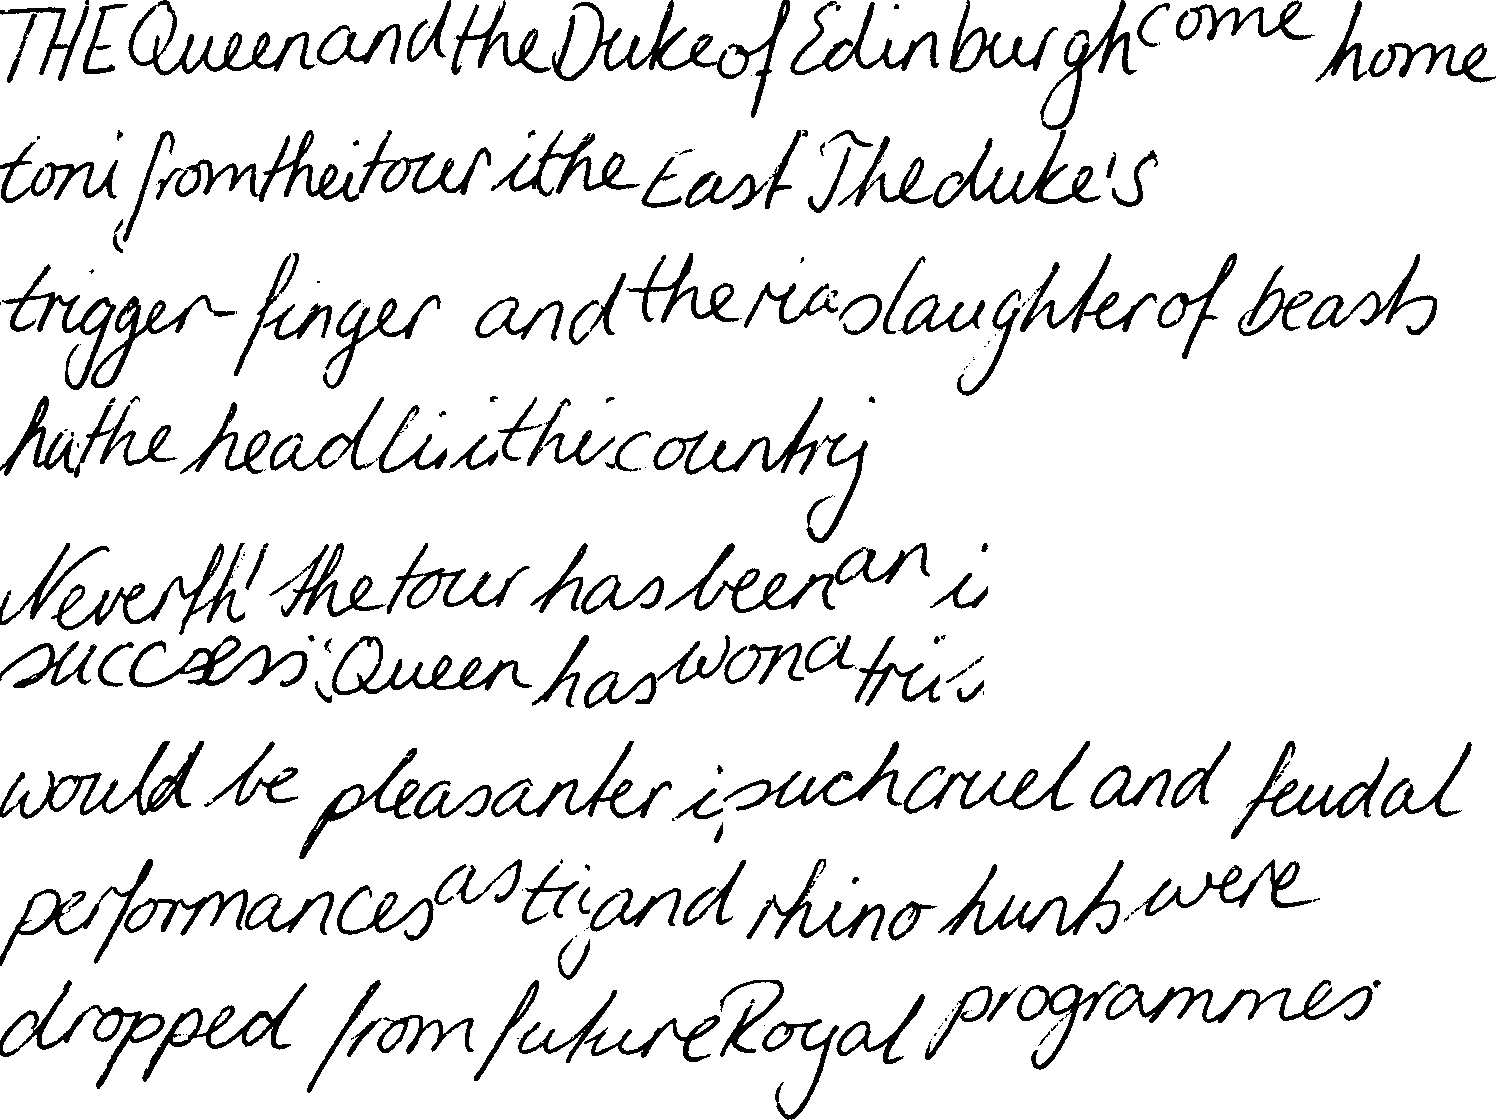 THE Queen and the Duke of Edinburgh come home
from tour the East The duke's
trigger-finger and the slaughter of beasts
the country
the tour has been an
success Queen has won a
would be pleasanter such cruel and feudal
performances as and rhino hunts were
dropped from future Royal programmes